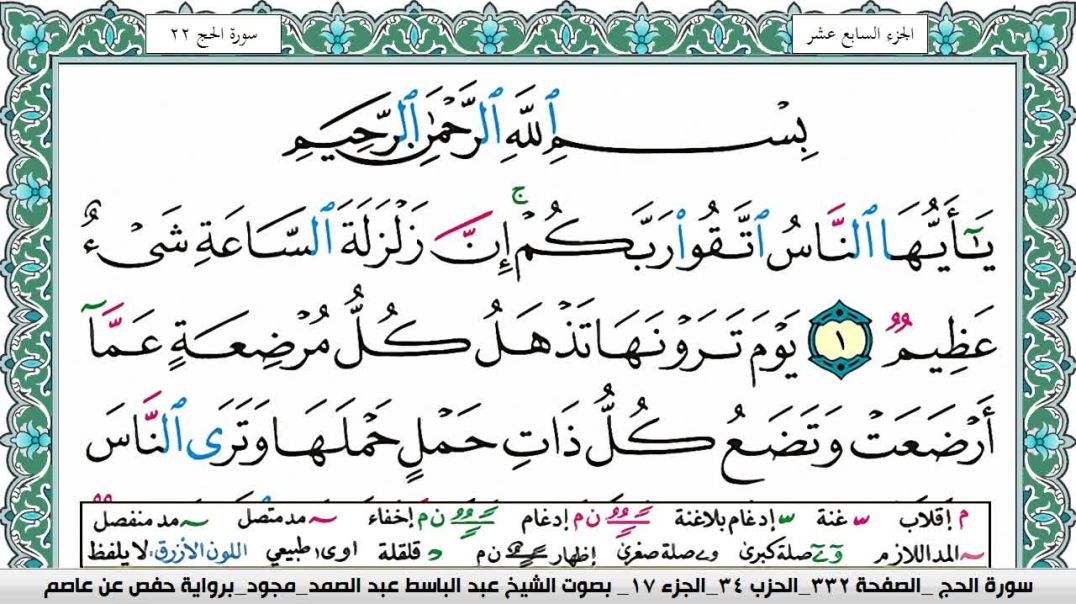 الجزء السابع عشر
سورة الحج ٢٢
بِسْمِ ٱللَّهِ ٱلرَّحْمَٰنِ ٱلرَّحِيمِ
يَـٰٓأَيُّهَا ٱلنَّاسُ ٱتَّقُوا۟ رَبَّكُمْ ۚ إِنَّ زَلْزَلَةَ ٱلسَّاعَةِ شَىْءٌ
عَظِيمٌ ١ يَوْمَ تَرَوْنَهَا تَذْهَلُ كُلُّ مُرْضِعَةٍ عَمَّآ
أَرْضَعَتْ وَتَضَعُ كُلُّ ذَاتِ حَمْلٍ حَمْلَهَا وَتَرَى ٱلنَّاسَ
م إقلاب غنة إدغام بلاغنة ن م إدغام ن م إخفاء مد متصل مد منفصل
المد اللازم صلة كبرى صلة صغرى إظهار ن م قلقلة اوى طبيعي اللون الأزرق: لا يلفظ
سورة الحج _الصفحة ٣٣٢_الحزب ٣٤_الجزء ١٧_ بصوت الشيخ عبد الباسط عبد الصمد_مجود_برواية حفص عن عاصم